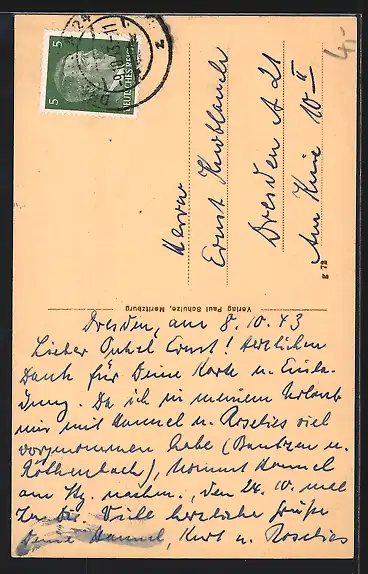 Dresden, am 8.10.43
Lieber Onkel Ernst! Herzlichen
Dank für Deine Karte u. Einla-
dung. Da ich in meinem Urlaub
mir mit Hammel u. Roselies viel
vorgenommen habe (Bautzen u.
Röthenbach), kommt Hammel
am Stg. nachm., den 24. 10. mal
zu Dir. Viele herzliche Grüße
Deine Hammel, Kurt u. Roselies
Herrn
Ernst Knoblauch
Dresden A 21
Am Knie 10 II
Verlag Paul Schulze, Moritzburg
g 72
5 5
DEUTSCHES REICH
4,-